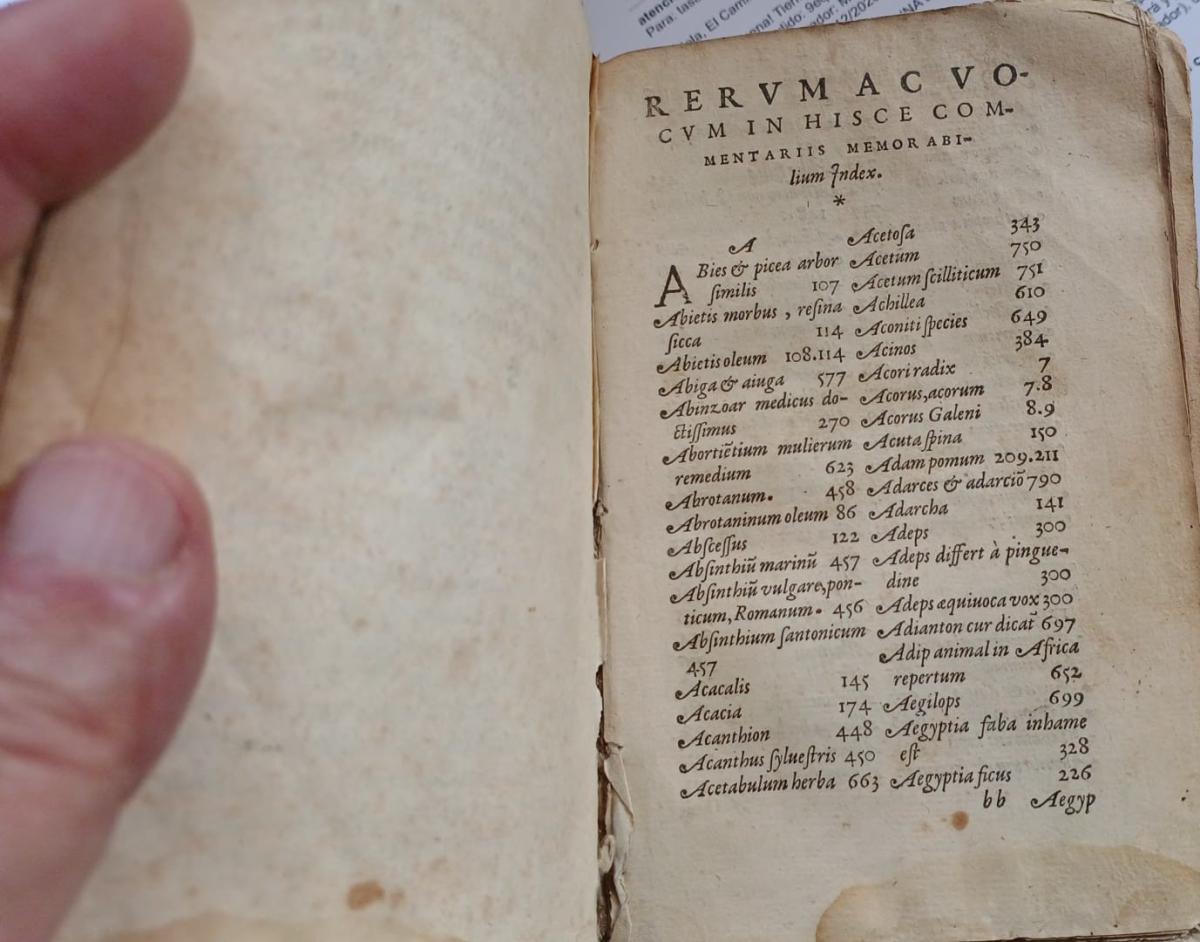 atenc
Para: tas
ela, El Cami
RERVM AC VO-
CVM IN HISCE COM-
MENTARIIS MEMORABI-
lium Index.
*
A
ABies & picea arbor
ſimilis 107
Abietis morbus, reſina
ſicca 114
Abietis oleum 108.114
Abiga & aiuga 577
Abinzoar medicus do-
ctiſſimus 270
Abortiētium mulierum
remedium 623
Abrotanum. 458
Abrotaninum oleum 86
Abſceſſus 122
Abſinthiū marinū 457
Abſinthiū vulgare, pon-
ticum, Romanum. 456
Abſinthium ſantonicum
457
Acacalis 145
Acacia 174
Acanthion 448
Acanthus ſylueſtris 450
Acetabulum herba 663
Acetoſa 343
Acetum 750
Acetum ſcilliticum 751
Achillea 610
Aconiti ſpecies 649
Acinos 384
Acori radix 7
Acorus, acorum 7.8
Acorus Galeni 8.9
Acuta ſpina 150
Adam pomum 209.211
Adarces & adarciō 790
Adarcha 141
Adeps 300
Adeps differt à pingue-
dine 300
Adeps æquiuoca vox 300
Adianton cur dicat̄ 697
Adip animal in Africa
repertum 652
Aegilops 699
Aegyptia faba inhame
eſt 328
Aegyptia ficus 226
bb Aegyp